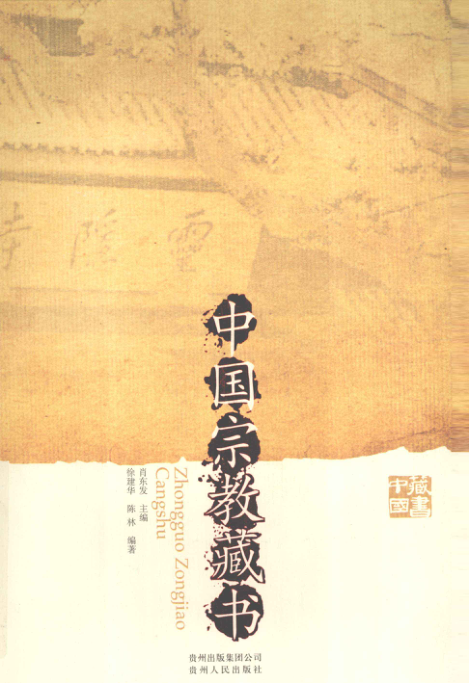 靈隱寺
中国宗教藏书
Zhongguo Zongjiao
Cangshu
肖东发 主编
徐建华 陈林 编著
藏書
中國
贵州出版集团公司
贵州人民出版社